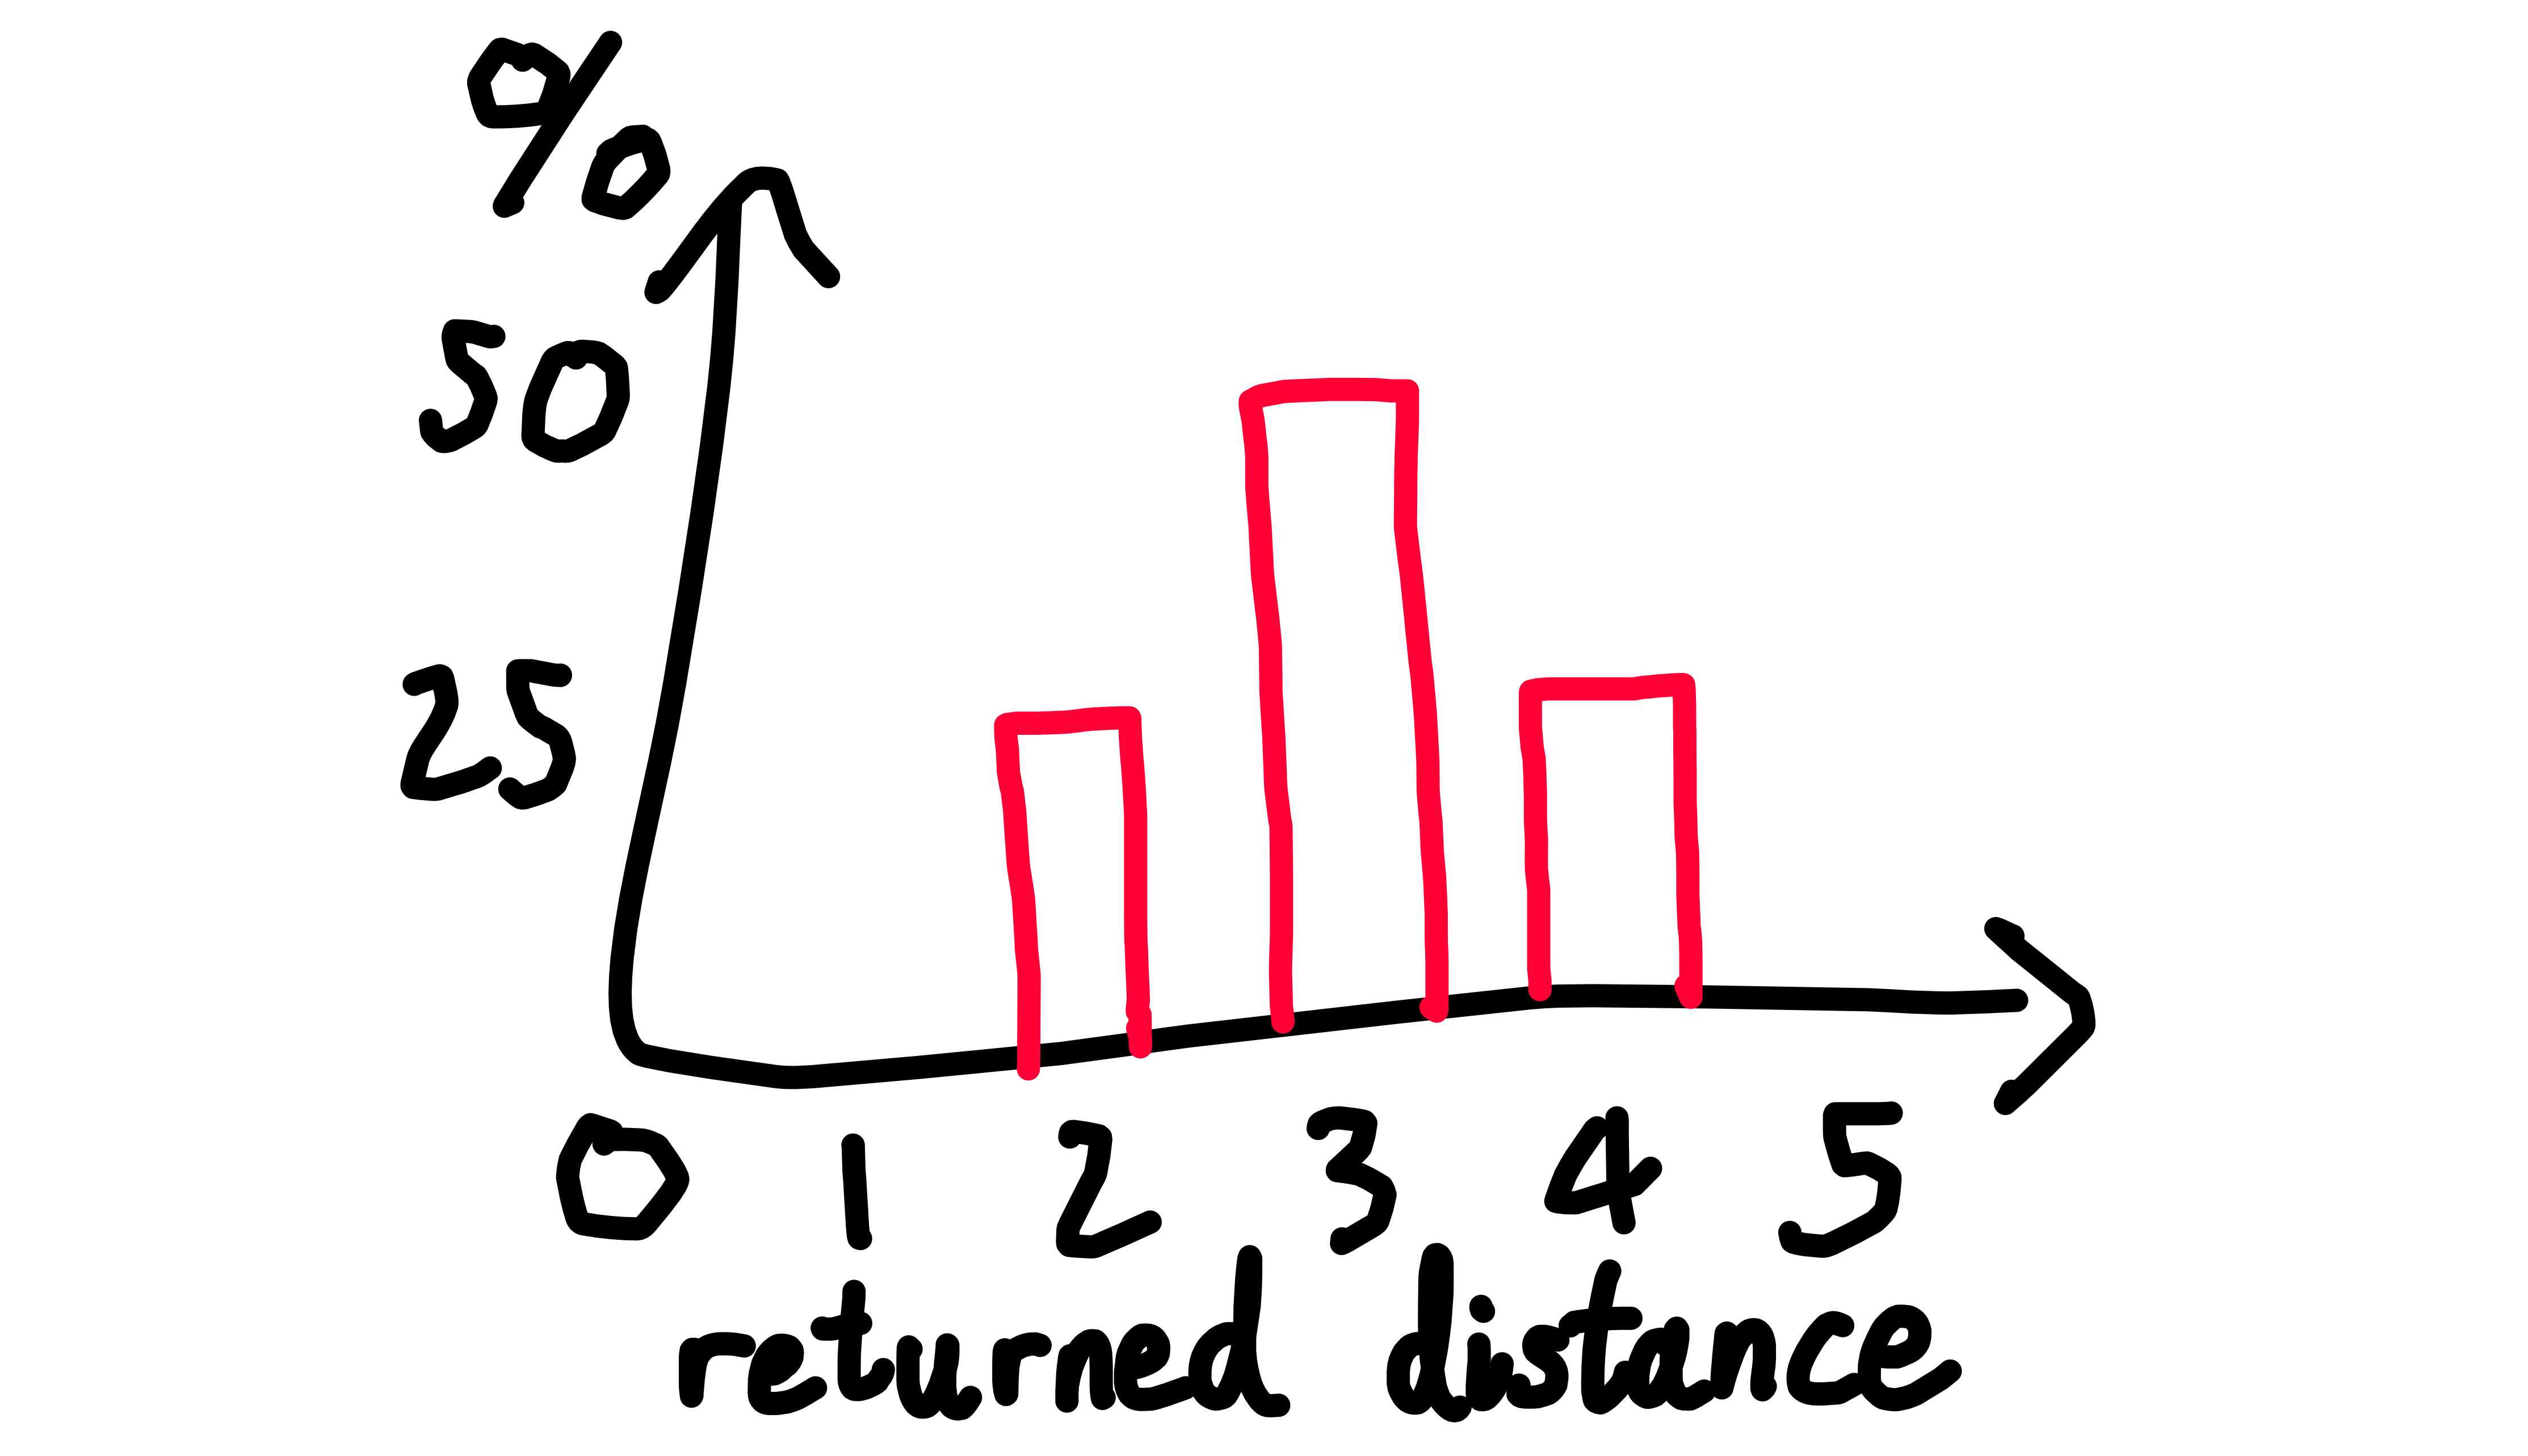 %
50
25
0 1 2 3 4 5
returned distance